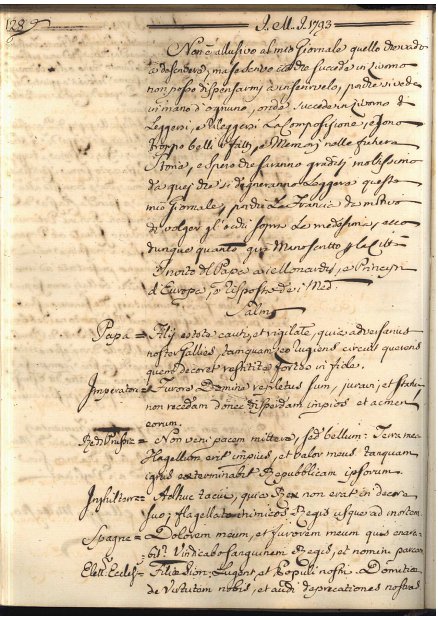 128
J. M. J. 1793
Non è allusivo al mio Giornale quello che vado
a descrivere, ma se scrivo ciò che succede in Livorno
non posso dispensarmi a inserirvelo, perche si vede
in mano d'ognuno, onde succede in Livorno di
Leggersi, e rileggersi La Composizione, e sono
troppo belli i fatti, e Memorj nelle future
Storie, e spero che saranno graditi moltissimo
da quei che si degneranno Leggere questo
mio Giornale, perche La Francia da motivo
di volger gl'occhi sopra Le medesime, ecco
dunque quanto quà Manoscritto p la Città
Invito del Papa ai Monarchi, e Principi
d'Europa, e risposta de i Med:
Salmi
Papa = Filij estote cauti, et vigilate, quia adversarius
noster Gallies, tanquam Leo rugiens circuit querens
quem devoret resistite fortes in fide.
Imperatore = Furore Domine repletus sum, juravi, et statui
non recedam donec disperdam impios et a mente
eorum.
Re di Prussia = Non veni pacem mittere, sed bellum: Terra mea
flagellum erit impius, et valor meus tanquam
ignis exterminabit Republicam ipsorum.
Inghilterra = Adhuc tacui, quia Rex non erat in decora
suo; flagellate inimicos Regis usque ad mortem.
Spagna = Dolorem meum, et furorem meum quis enara-
bit? Vindicabo sanguinem Regis, et nomini parcam
Elett: Eccles: = Filiæ Sion, Lugent, et Populi nostri. Domine
da Virtutem nobis, et audi deprecationes nostras